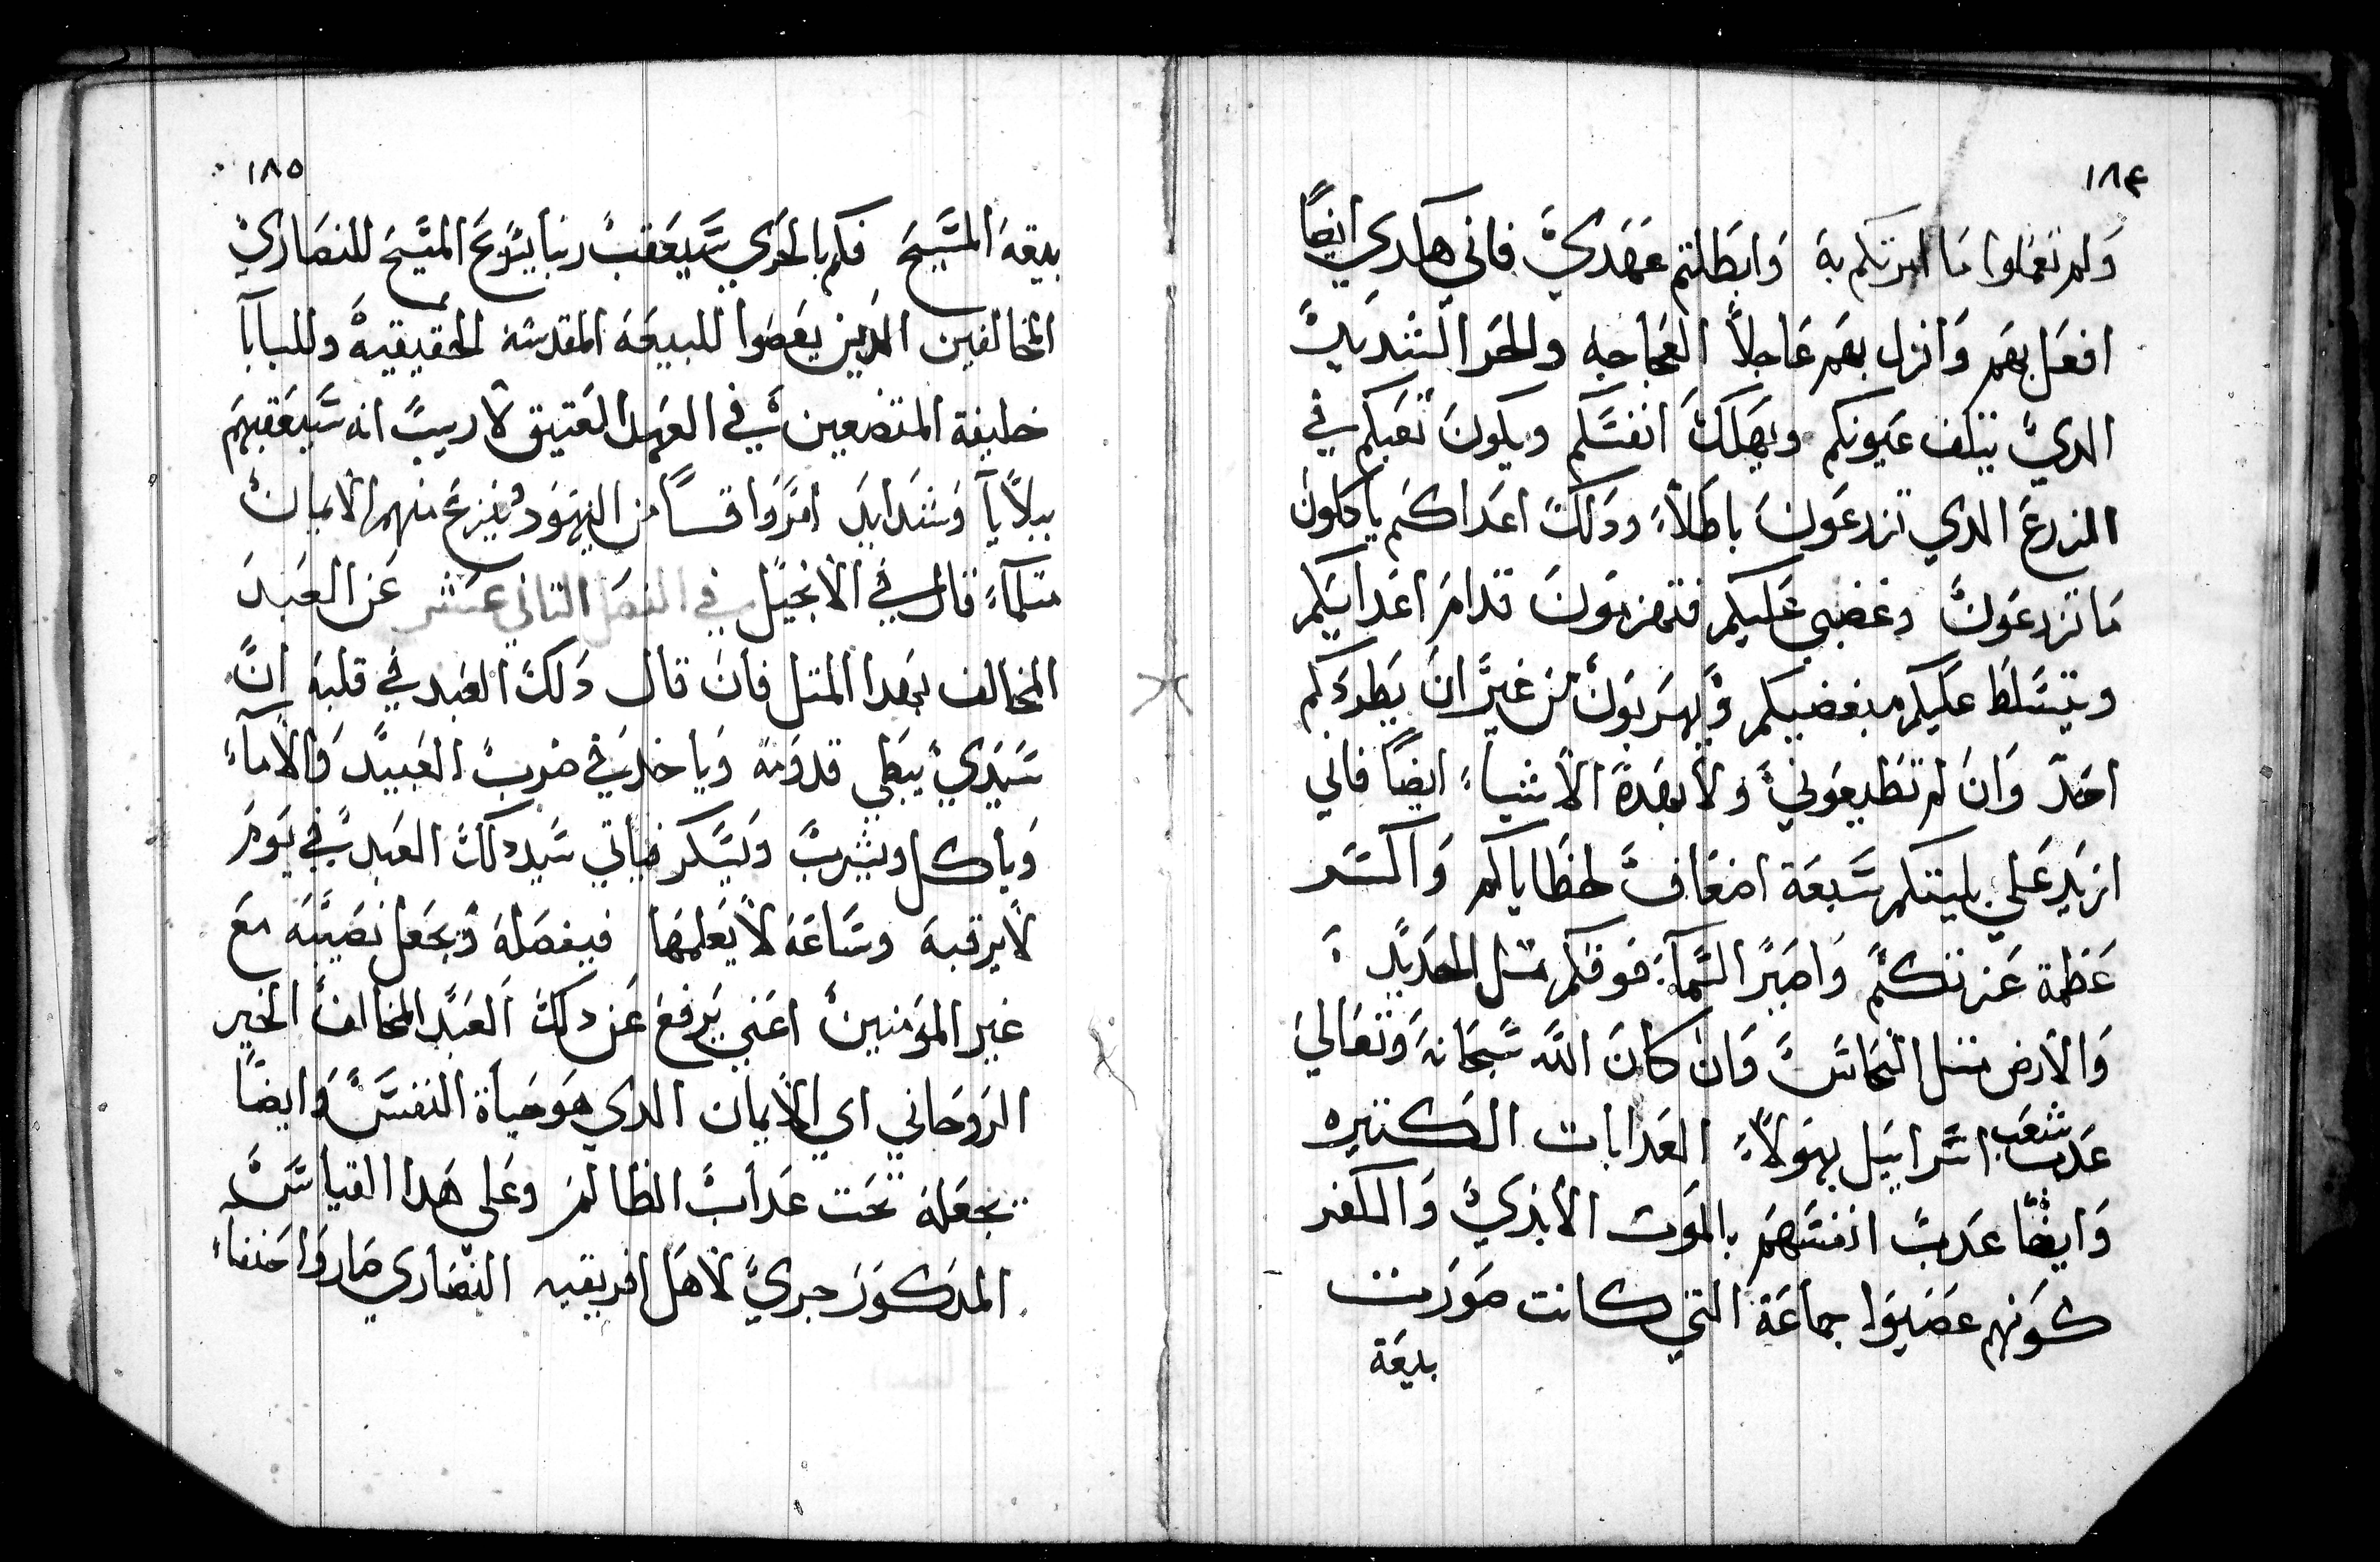 ١٨٤
ولم تعملوا ما امرتكم به وابطلتم عهدي فاني هاكدي ايضًا
افعل بهم وانزل بهم عاجلاً العجاجه والحر الشديد
الدي يتلف عيونكم ويهلك انفسكم ويكون تعبكم في
الزرع الدي تزرعون باطلاً ودلك اعداكم ياكلون
ما تزرعون وغضبي عليكم فتهزمون قدام اعدايكم
ويتسلط عليكم مبغضيكم وتهربون من غير ان يطردكم
احد وان لم تطيعوني ولا بهده الاشياء ايضًا فاني
ازيد علي بليتكم سبعة اضعاف لخطاياكم واكسر
عظمة عزتكم واصير السماء فوقكم مثل الحديد
والارض مثل النحاس وان كان الله سبحانه وتعالي
عدب شعب اسراييل بهولاء العدابات الكتيره
وايضًا عدب انفسهم بالموت الابدي والكفر
كونهم عصيوا جماعة التي كانت صورت
بيعة
١٨٥
بيعة المسيح فكم بالحري سيعقب ربنا يسوع المسيح للنصاري
المخالفين الدين يعصوا للبيعة المقدسة الحقيقية وللبابا
خليفة المتضعين في العهد العتيق لا ريب انه سيعقبهم
ببلايا وشدايد امر واقسا من اليهود وينزع منهم الايمان
متلما قال في الانجيل في الفصل التاني عشر عن العبد
المخالف بهدا المتل فان قال دلك العبد في قلبه ان
سيدي يبطي قدومه وياخد في ضرب العبيد والاماء
وياكل ويشرب ويسكر فياتي سيد دلك العبد في يوم
لا يرقبه وساعة لا يعلمها فيفصله ويجعل نصيبه مع
غير المومنين اعني يرفع عن دلك العبد المخالف الخير
الروحاني اي الايمان الدي هو حياة النفس وايضًا
يجعله تحت عداب الظالم وعلي هدا القياس
المدكور جري لاهل افريقيه النصاري صاروا حنفاء